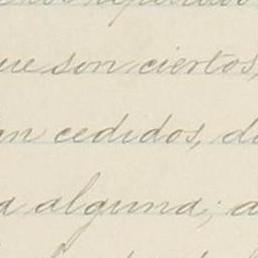 ue son ciertos,
an cedidos, d
a alguna; a